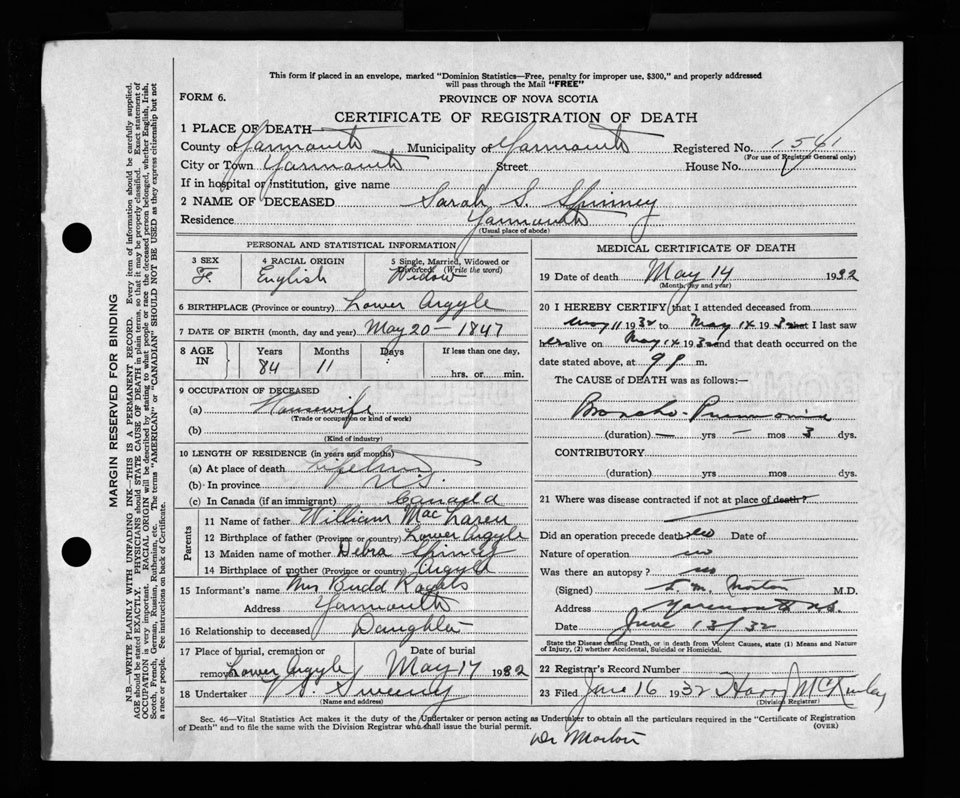 This form if placed in an envelope, marked "Dominion Statistics—Free, penalty for improper use, $300," and properly addressed
will pass through the Mail "FREE"
FORM 6.
PROVINCE OF NOVA SCOTIA
CERTIFICATE OF REGISTRATION OF DEATH
1 PLACE OF DEATH—
County of Yarmouth Municipality of Yarmouth Registered No. 1541
(For use of Registrar General only)
City or Town Yarmouth Street House No.
If in hospital or institution, give name
2 NAME OF DECEASED Sarah S. Spinney
Residence Yarmouth
(Usual place of abode)
PERSONAL AND STATISTICAL INFORMATION
3 SEX 4 RACIAL ORIGIN 5 Single, Married, Widowed or
Divorced (Write the word)
F. English Widow
6 BIRTHPLACE (Province or country) Lower Argyle
7 DATE OF BIRTH (month, day and year) May 20 - 1847
8 AGE IN Years Months Days If less than one day,
84 11 hrs. or min.
9 OCCUPATION OF DECEASED
(a) Housewife
(Trade or occupation or kind of work)
(b)
(Kind of industry)
10 LENGTH OF RESIDENCE (in years and months)
(a) At place of death
(b) In province N.S.
(c) In Canada (if an immigrant) Canada
Parents
11 Name of father William MacLaren
12 Birthplace of father (Province or country) Lower Argyle
13 Maiden name of mother Debra Spinney
14 Birthplace of mother (Province or country) Argyle
15 Informant's name Mrs Budd
Address Yarmouth
16 Relationship to deceased Daughter
17 Place of burial, cremation or Date of burial
removal Lower Argyle May 17 1932
18 Undertaker Sweeney
(Name and address)
MEDICAL CERTIFICATE OF DEATH
19 Date of death May 14 1932
(Month, day and year)
20 I HEREBY CERTIFY that I attended deceased from
May 11 1932 to May 14 1932 that I last saw
her alive on May 14 1932 and that death occurred on the
date stated above, at 9 P. m.
The CAUSE of DEATH was as follows:—
Broncho-Pneumonia
(duration) — yrs — mos 3 dys.
CONTRIBUTORY
(duration) yrs. mos. dys.
21 Where was disease contracted if not at place of death?
Did an operation precede death? no Date of
Nature of operation no
Was there an autopsy? no
(Signed) Morton M.D.
Address Yarmouth N.S.
Date June 13/32
State the Disease causing Death, or in death from Violent Causes, state (1) Means and Nature
of Injury, (2) whether Accidental, Suicidal or Homicidal.
22 Registrar's Record Number
23 Filed June 16 1932
(Division Registrar)
Sec. 46—Vital Statistics Act makes it the duty of the Undertaker or person acting as Undertaker to obtain all the particulars required in the "Certificate of Registration
of Death" and to file the same with the Division Registrar who shall issue the burial permit. (OVER)
Dr Morton
MARGIN RESERVED FOR BINDING
N.B.—WRITE PLAINLY WITH UNFADING INK—THIS IS A PERMANENT RECORD. Every item of information should be carefully supplied.
AGE should be stated EXACTLY. PHYSICIANS should STATE CAUSE OF DEATH in plain terms, so that it may be properly classified. Exact statement of
OCCUPATION is very important. RACIAL ORIGIN will be described by stating to what people or race the deceased person belonged, whether English, Irish,
Scotch, French, German, Russian, Ruthenian, etc. The terms "AMERICAN" or "CANADIAN" SHOULD NOT BE USED as they express citizenship but not
a race or people. See instructions on back of Certificate.